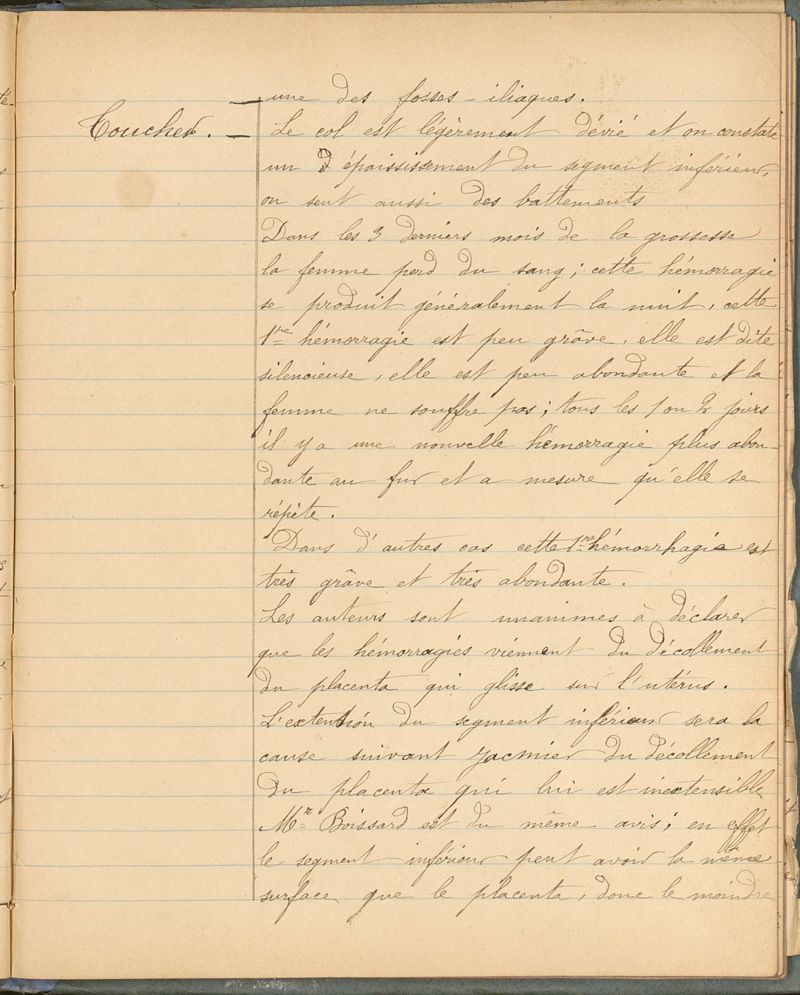 une des fosses - iliaques.
Toucher. — Le col est légèrement dévié et on constate
un Dépaississement du segment inférieur,
on sent aussi des battements
Dans les 3 derniers mois de la grossesse
la femme perd du sang ; cette hémorragie
se produit généralement la nuit, cette
1re hémorragie est peu grâve, elle est dite
silencieuse, elle est peu abondante et la
femme ne souffre pas ; tous les 1 ou 2 jours
il y a une nouvelle hémorragie plus abon-
dante au fur et a mesure qu'elle se
répète.
Dans d'autres cas cette 1re hémorrhagie est
très grâve et très abondante.
Les auteurs sont unanimes à déclarer
que les hémorragies viennent du décollement
du placenta qui glisse sur l'utérus.
L'extention du segment inférieur sera la
cause suivant Jacmier du décollement
du placenta qui lui est inextensible
Mr Boissard est du même avis ; en effet
le segment inférieur peut avoir la même
surface que le placenta, donc le moindre